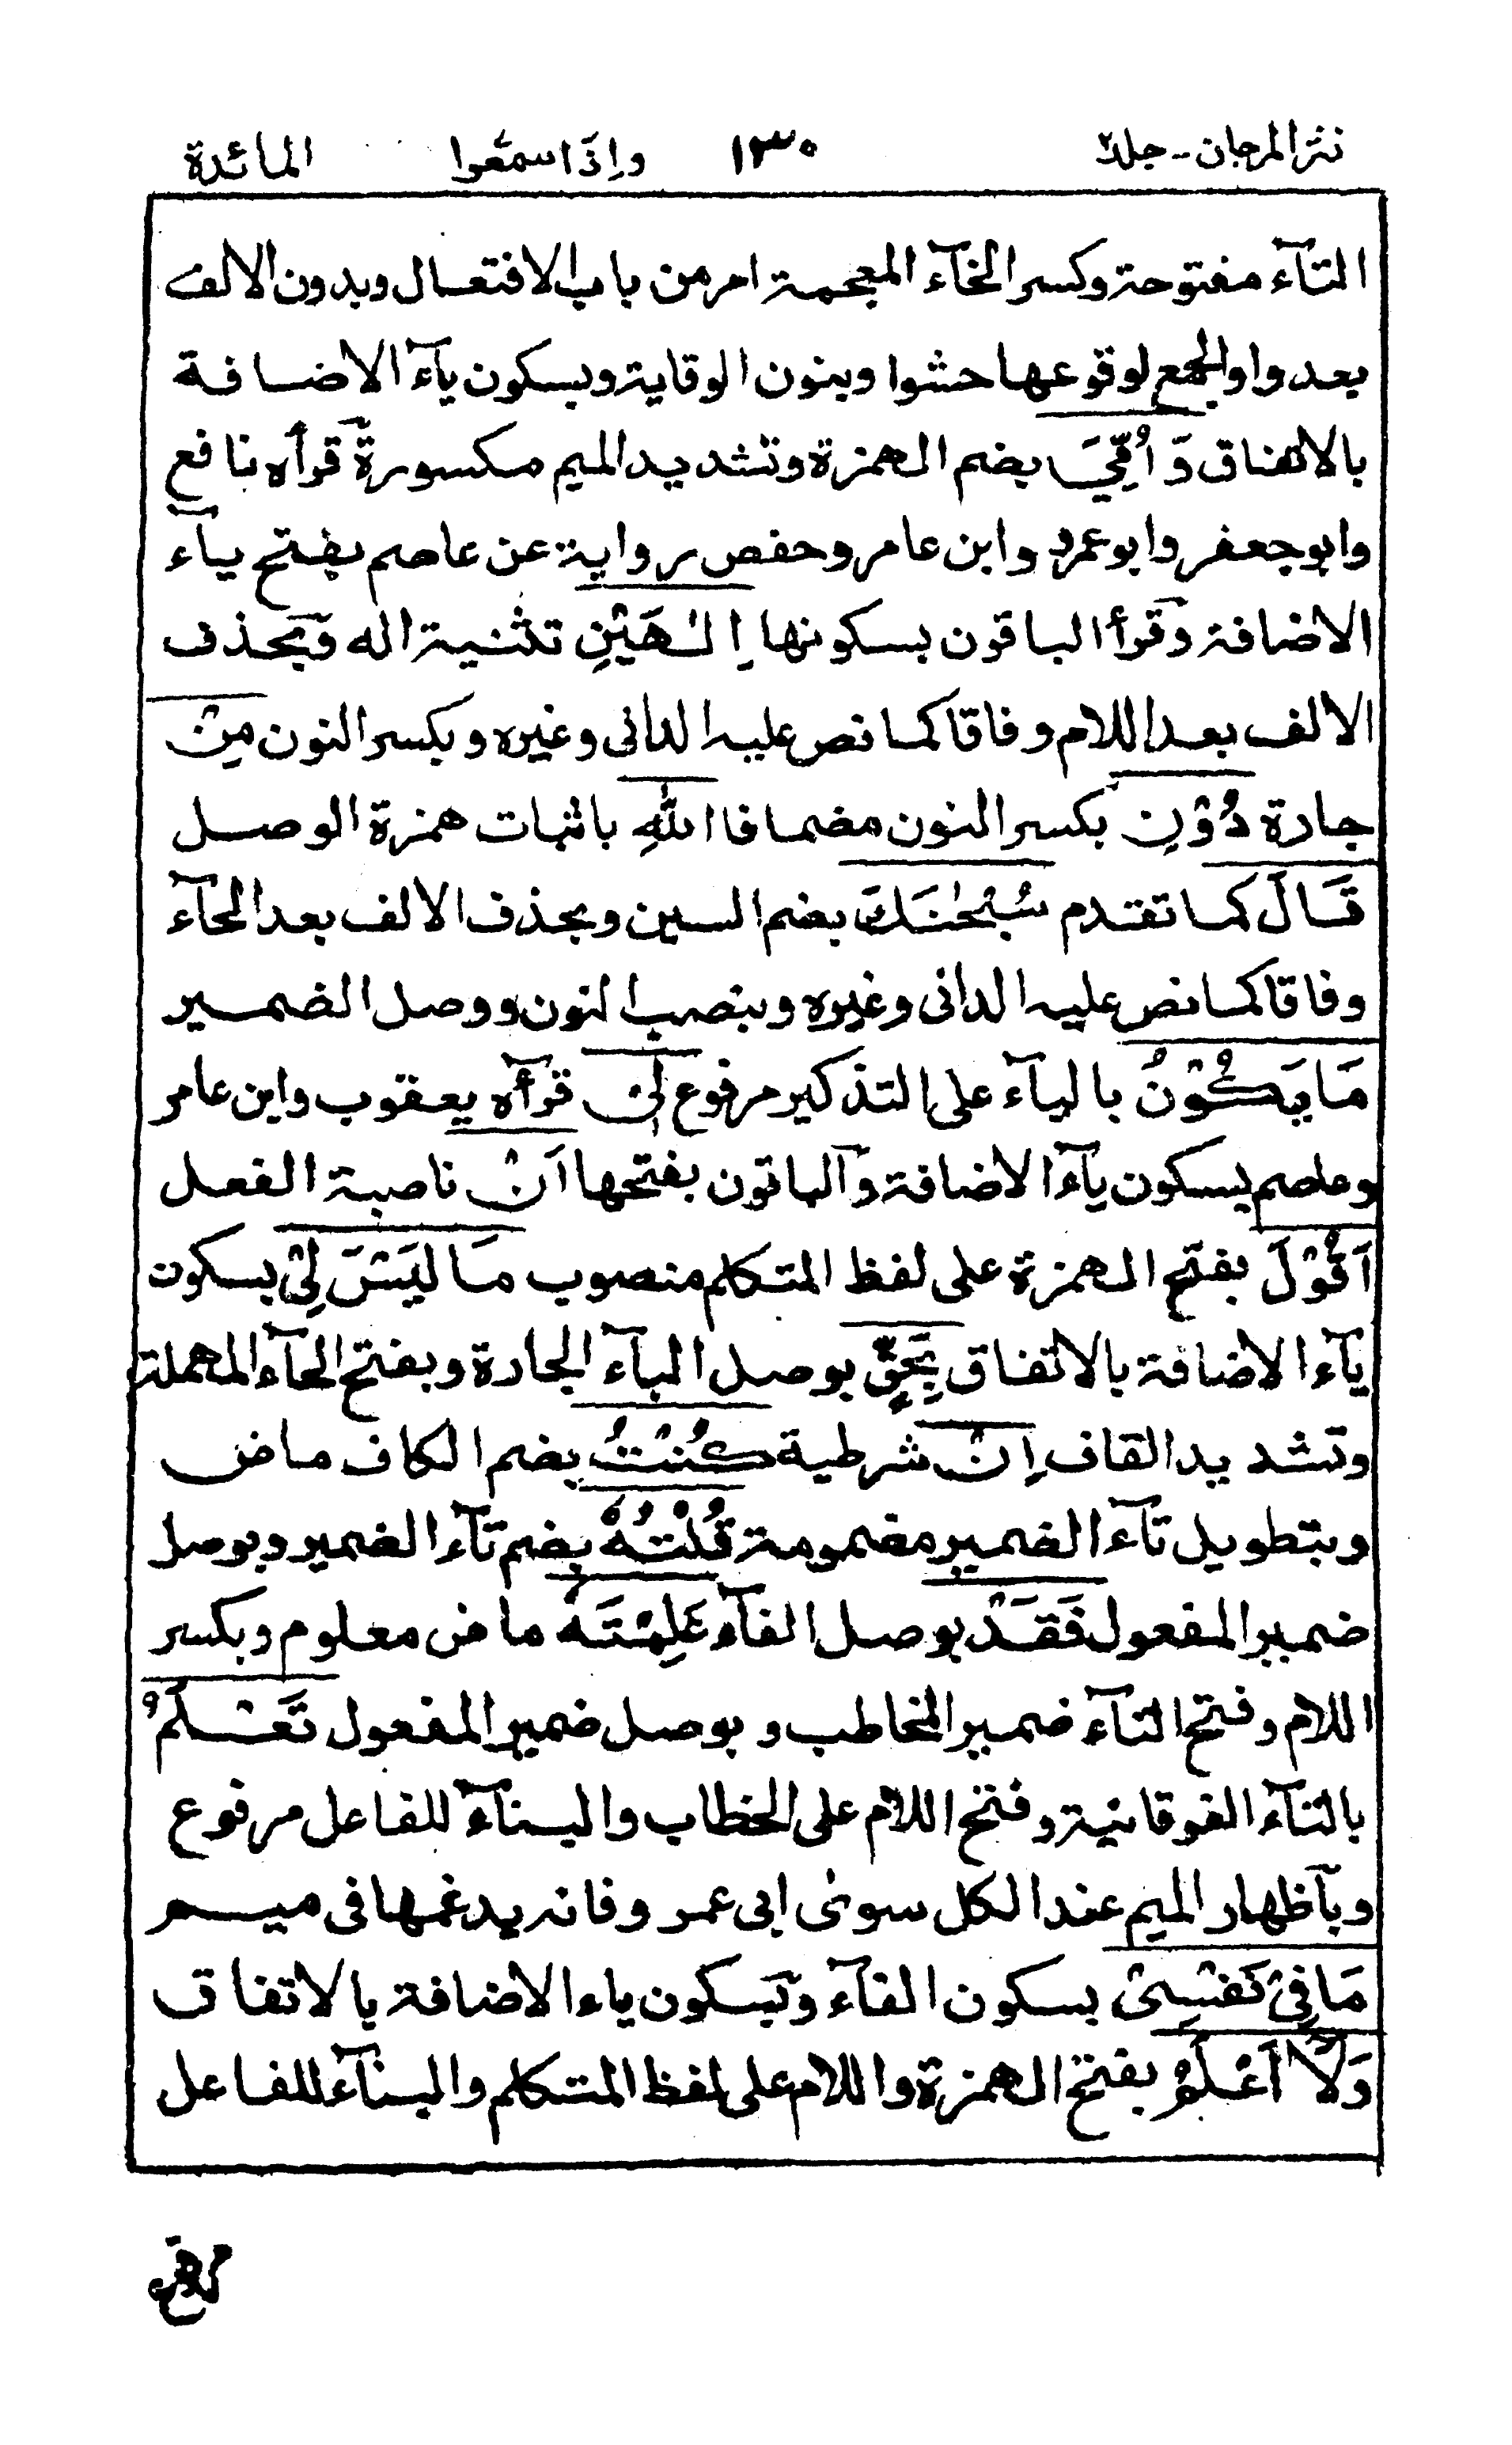 نثر المرجان - جلد٢ ١٣٠ واذا سمعوا المائدة
التآء مفتوحة وكسر الخآء المعجمة امر من باب الافتعال وبدون الالف
بعد واو الجمع لوقوعها حشوا وبنون الوقاية وبسكون يآء الاضافة
بالاتفاق وَاُمِّيَ بضم الهمزة وتشديد الميم مكسورة قرأه نافع
وابو جعفر وابو عمرو وابن عامر وحفص رواية عن عاصم بفتح يآء
الاضافة وقرأ الباقون بسكونها اِلٰهَيْنِ تثنية اله وبحذف
الالف بعد اللام وفاقا كما نص عليه الدانى وغيره وبكسر النون مِنْ
جارة دُوْنِ بكسر النون مضافا اللّٰهِ باثبات همزة الوصل
قَالَ كما تقدم سُبْحٰنَكَ بضم السين وبحذف الالف بعد الحآء
وفاقا كما نص عليه الدانى وغيره وبنصب النون ووصل الضمير
مَا يَكُوْنُ باليآء على التذكير مرفوع لِىْ قرأه يعقوب وابن عامر
وعاصم بسكون يآء الاضافة والباقون بفتحها اَنْ ناصبة الفعل
اَقُوْلَ بفتح الهمزة على لفظ المتكلم منصوب مَا لَيْسَ لِىْ بسكون
يآء الاضافة بالاتفاق بِحَقٍّ بوصل البآء الجارة وبفتح الحآء المهملة
وتشديد القاف اِنْ شرطية كُنْتُ بضم الكاف ماض
وبتطويل تآء الضمير مضمومة قُلْتُهٗ بضم تآء الضمير وبوصل
ضمير المفعول فَقَدْ بوصل الفآء عَلِمْتَهٗ ماض معلوم وبكسر
اللام وفتح التآء ضمير المخاطب وبوصل ضمير المفعول تَعْلَمُ
بالتآء الفوقانية وفتح اللام على الخطاب والبنآء للفاعل مرفوع
وبآظهار الميم عند الكل سوى ابى عمرو فانه يدغمها فى ميم
مَا فِىْ نَفْسِىْ بسكون الفآء وبسكون ياء الاضافة بالاتفاق
وَلَآ اَعْلَمُ بفتح الهمزة واللام على لفظ المتكلم والبنآء للفاعل
مرفوع